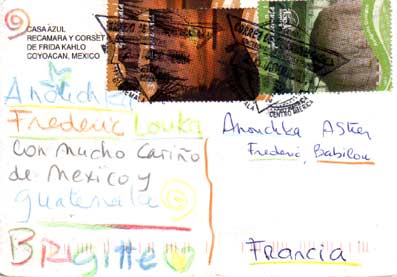 CASA AZUL
RECAMARA Y CORSET
DE FRIDA KAHLO
COYOACAN, MEXICO
Anouchka
Frederic Louka
con mucho Cariño
de Mexico y
guatemala
BRigitte
Anouchka
Frederic, Babilou
Francia
CENTRO AMERICA